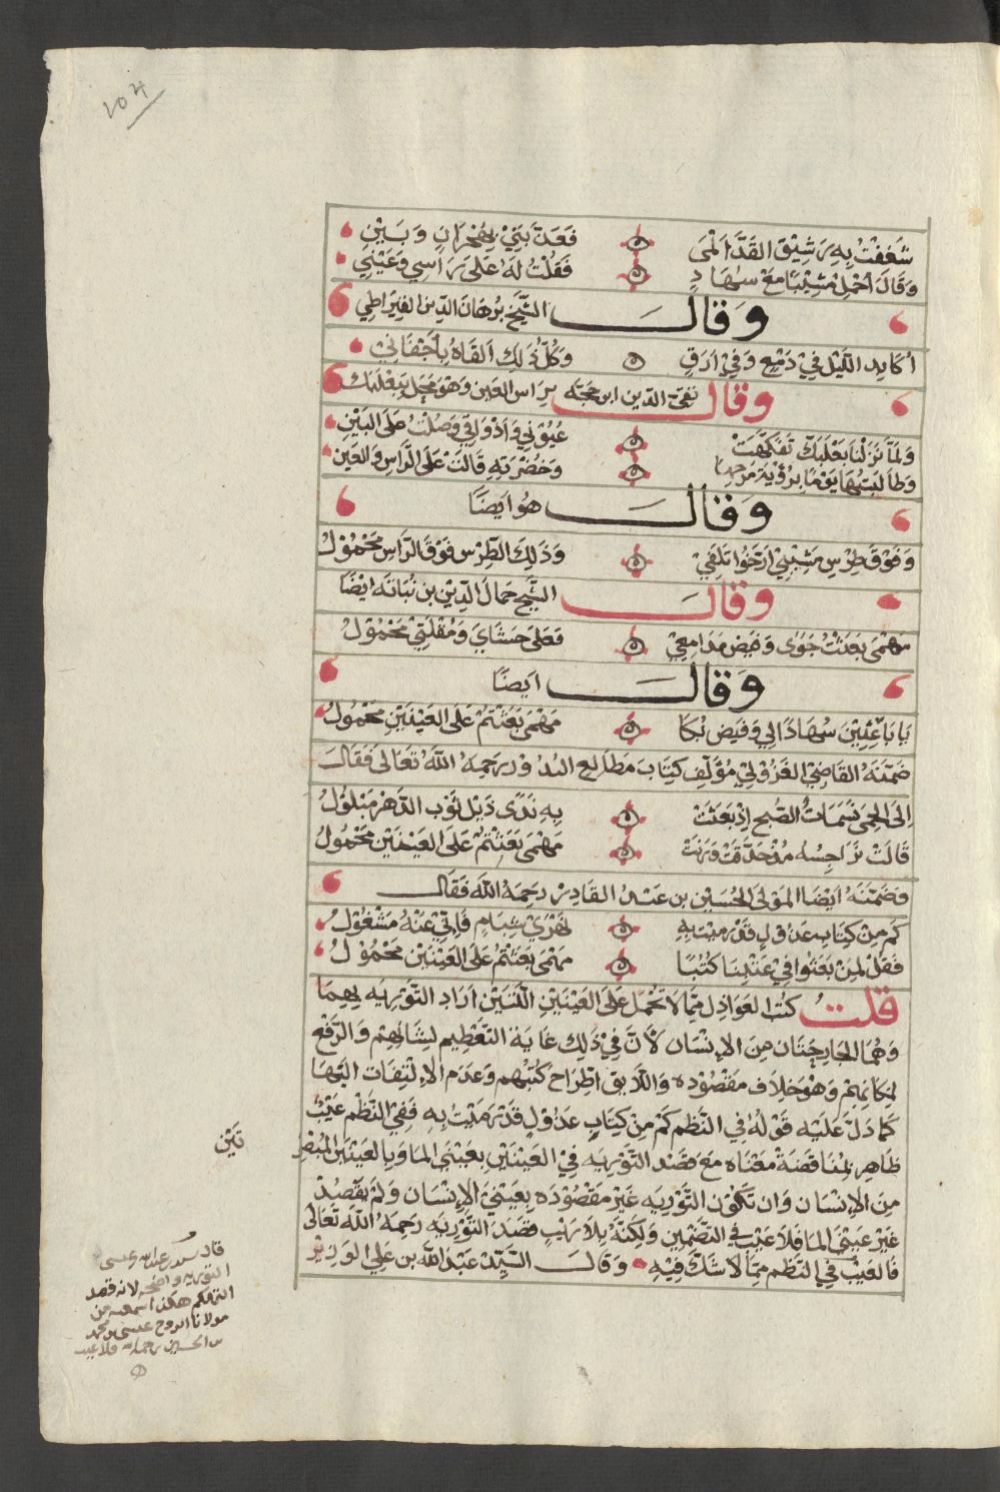 شَغفْتُ بِهِ رَشِيْقَ القَدِّ اَلْمَى فَعَذَّبَنِيْ بِهِجْرَانٍ وَبَيْنِ
وَقَالَ احْمِلْ مَشِيْبًا مَعْ سُهَادٍ فَقُلْتُ لَهُ عَلَى رَاسِي وَعَيْنِي
وَقَالَ الشَّيْخ بُرهَان الدِّين القيرَاطِي
اُكَابِد اللَّيْل فيْ دَمْعٍ وَفيْ اَرَقٍ وَكُلّ ذٰلِكَ اَلقَاهُ بِاَجْفَانِيْ
وقال تقيّ الدّين ابن حجّه برَاس العَين وَهْوَ بِبَعْلَبَك
وَلَمّا نَزَلْنَا بَعْلَبَكّ تَفَكَّهَتْ عُيُوْنِي وَاَذْوَاقِي وَصُلْتُ عَلَى البَيْنِ
وَطَالَبْتُهَا يَوْمًا بِرُؤْيَة مَرْجِهَا وَخُضْرَتِهِ قَالَتْ عَلَى الرَّاسِ وَالعَيْن
وَقَالَ هُوَ ايضًا
وَفَوْقَ طِرْسِ مَشِيْبِيْ اَرَّخُوا تَلَفِيْ وَذٰلِكَ الطِّرْس فَوْقَ الرَّاسِ مَحْمُوْلُ
وَقَالَ الشَّيْخ جَمَالُ الدِّيْن بن نُبَاتَه ايْضًا
مَهْمَى بَعَثْتُ جَوًى وَفَيْض مَدَامِعِيْ فَعَلَى حَشَايَ وَمُقْلَتِيْ مَحْمُوْلُ
وَقَالَ ايَضًا
يَا بَاعِثِيْنَ سُهَادًا لِي وَفَيْض بُكَا مَهْمَى بَعَثْتُمْ عَلَى العَيْنَيْنِ مَحْمُولُ
ضَمَّنَهُ القَاضِيْ الغَزُولِيْ مُؤَلِّف كِتَابَ مَطَالِع البُدُوْر رَحِمَهُ اللهُ تَعَالَى فَقَالَ
اِلَى الحِمَى نَسَمَاتُ الصُّبح اِذْ بَعَثَتْ بِهِ نَدًى ذَيْل ثَوْب الدَّهْر مَبْلُوْلُ
قَالَتْ نَرَاجِسُهُ مُذْ حَدَّقَتْ وَرَنَتْ مَهْمَى بَعَثْتُمْ عَلَى العَيْنَيْن مَحْمُولُ
فَضَمَّنَهُ اَيْضًا المَوْلَى الحُسَيْن بن عَبْد القَادِر رَحِمَهُ اللهُ فَقَالَ
كَم مِنْ كِتَاب عَذُوْلٍ قَدْ رَمَيْت بِهِ فَاِنِّيْ عَنْهُ مَشْغُوْلُ
فَقُلْ لِمَنْ بَعَثُوا فيْ عَتْبِنَا كُتُبًا مَهْمَى بَعَثْتُمْ عَلَى العَيْنَيْن مَحْمُوْلُ
قلتُ كتُب العَوَاذِل مِمَّا لَا تُحْمَل عَلَى العَيْنَيْنِ اللَّتَيْنِ اَرَادَ التَّوْرِيَه بِهِمَا
وَهُمَا الجَارِحَتَان مِنَ الاِنْسَان لاَنَّ فيْ ذٰلِكَ غَايَة التَّعْظِيم لِشَانِهِمْ وَالرَّفْع
لِمَكَانِهِمْ وَهْوَ خِلَاف مَقْصُوْدِهِ وَاللَّايِق اطِّرَاح كُتُبهم وَعَدَم الاِلْتِفَات اِلَيْهَا
كَمَا دَلّ عَلَيْهِ قَوْلُهُ فِي النَّظم كَمْ مِنْ كِتَابِ عَذُوْلٍ قَدْ رَمَيْتُ بِهِ فَفِي النَّظْم عَيْبٌ
ظَاهِر لِمُنَاقَضَةِ مَعْنَاهُ مَعَ قَصْد التَّوْرِيَهِ فيْ العَيْنَيْن بِعَيْنَي المَا وَبِالعَيْنَيْن
تَيْن
مِنَ الاِنْسَان وَان تَكُوْن التَّوْرِيَه غَيْر مَقْصُوْدَه بِعَيْنَيْ الاِنْسَان وَلَمْ يَقْصِدْ
غَيْرَ عَيْنَي المَا فَلَا عَيْبَ فِي التَّضْمِين وَلٰكِنَّهُ بِلَا رَيْبٍ قَصَدَ التَّوْرِيَه رَحِمَهُ اللهُ تَعَالَى
فَالعَيْبُ فِي النَّظْم مِمَّا لَا شَكَّ فِيْهِ وَقَالَ السَّيِّدْ عَبْدُ اللهِ بن عَلِي الوَزِيْر
عبدالله عيسى
التوريه واضحه لانه قصد
التهكم هكذا سمعه من
مولانا عيسى بن محمد
بن الحسين رحمه فلا عيب